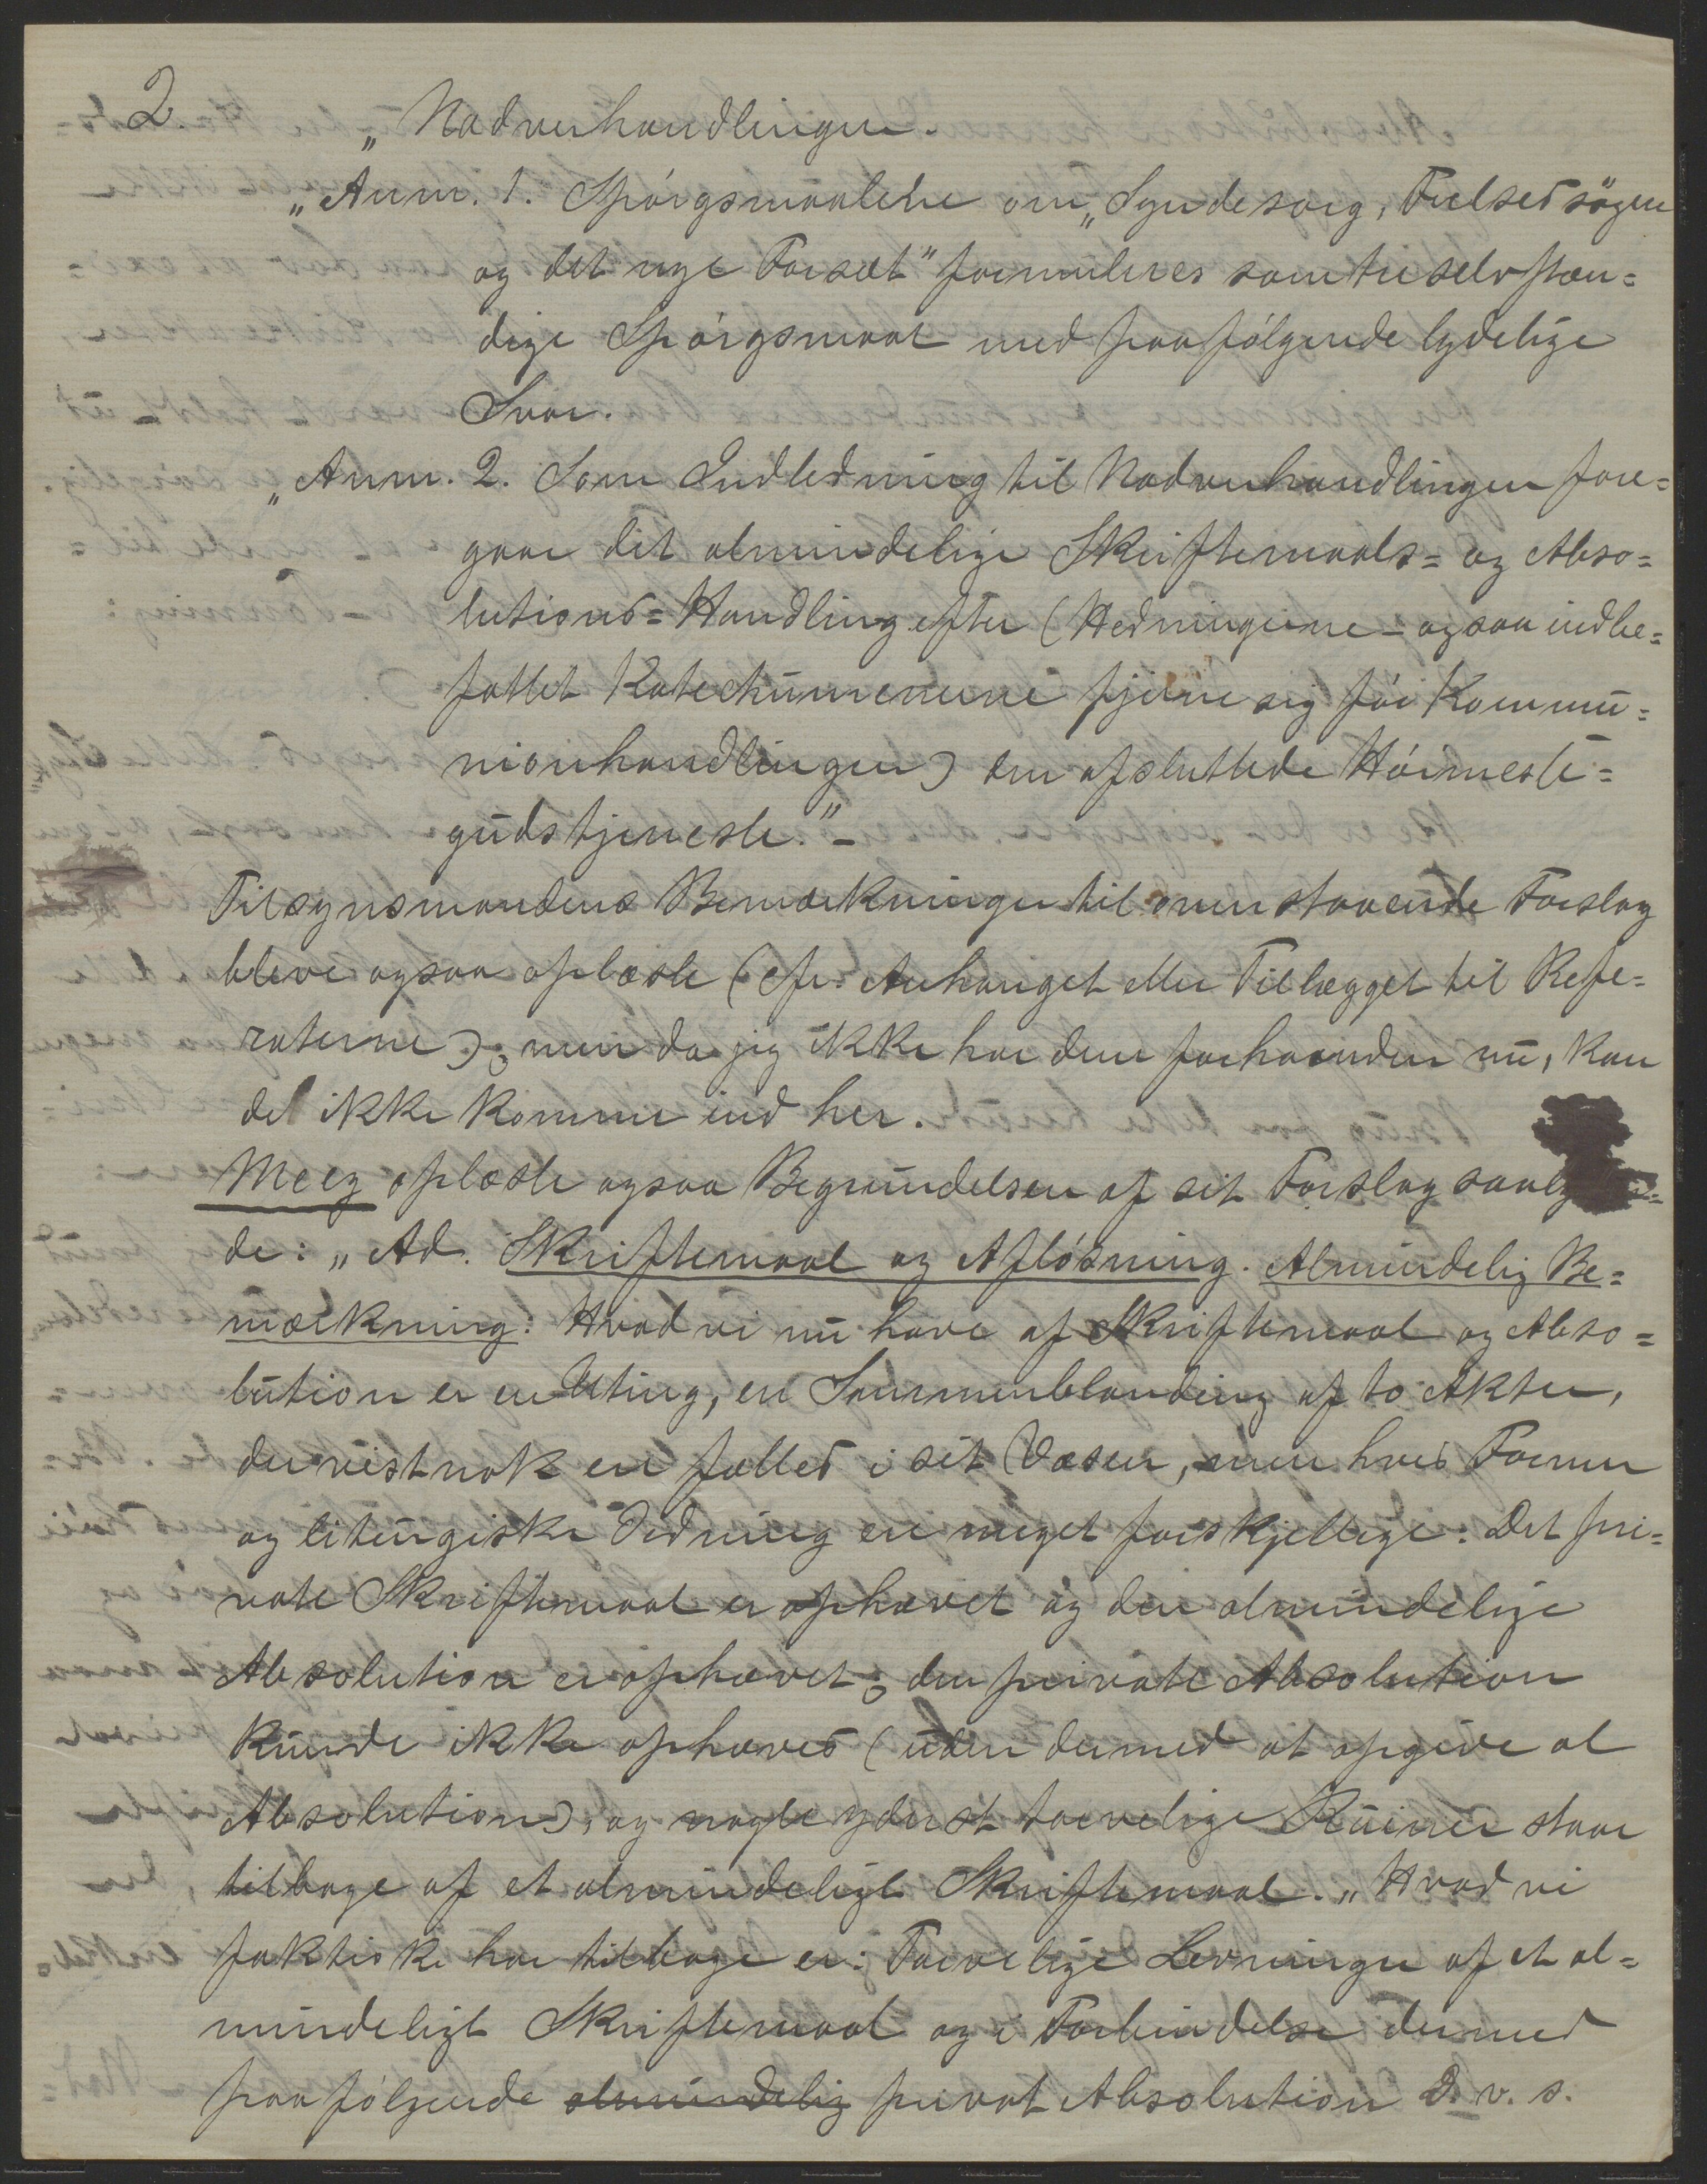 2.
„Nadverhandlingen.
„Anm. 1. Spörgsmaalene om „Syndesorg, Frelsessögen
og det nye Forsæt" formuleres som tre selvstæn=
dige Spörgsmaal med paafölgende lydelige
Svar.
„Anm. 2. Som Indledning til Nadverhandlingen fore=
gaar det almindelige Skriftemaals= og Abso=
lutions=Handling efter (Hedningerne – ogsaa indbe=
fattet Katechumenerne fjerne sig för Kommu=
nionhandlingen) den afsluttede Höimesse=
gudstjeneste."–
Tilsynsmandens Bemærkninger til ovenstaaende Forslag
bleve ogsaa oplæste (cfr. Anhanget eller Tillægget til Refe=
raterne); men da jeg ikke har dem forhaanden nu, kan
det ikke komme ind her.
Meeg oplæste ogsaa Begrundelsen af sit Forslag saaly
de: „Ad. Skriftemaal og Aflösning. Almindelig Be=
mærkning: Hvad vi nu have af Skriftemaal og Abso=
lution er en Uting, en Sammenblanding af to Akter,
der vistnok ere fælles i sit Væsen, men hvis Former
og liturgiske Ordning ere meget forskjellige: Det pri=
vate Skriftemaal er ophævet og den almindelige
Absolution er ophævet; den private Absolution
kunde ikke ophæves (uden dermed at opgive al
Absolution), og nogle yderst tarvelige Ruiner staar
tilbage af et almindeligt Skriftemaal. „Hvad vi
faktiske har tilbage er: Tarvelige Levninger af et al=
mindeligt Skriftemaal og i Forbindelse dermed
paafölgende almindelig privat Absolution D. v. s.